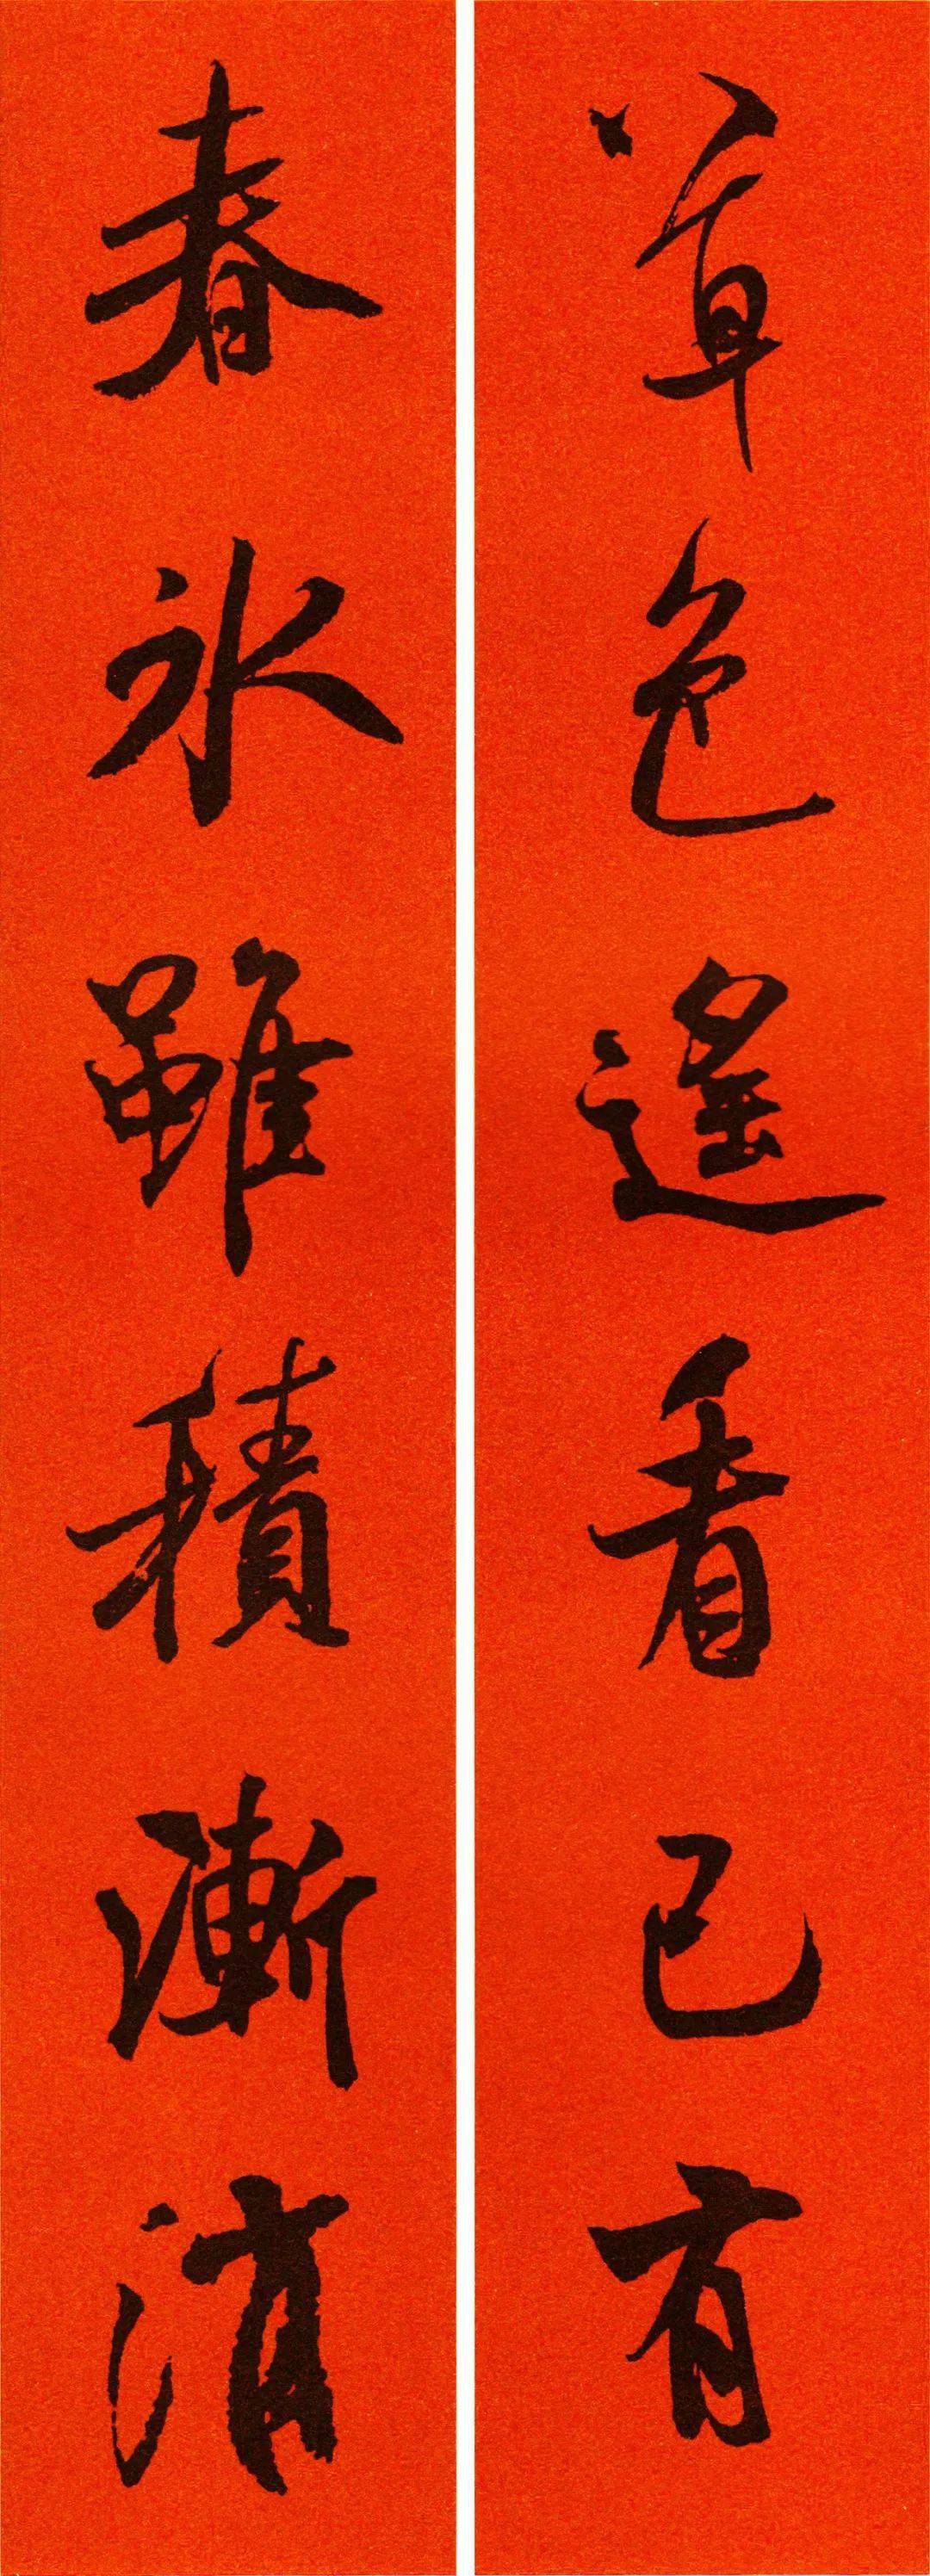 草色遙看已有
春冰雖積漸消